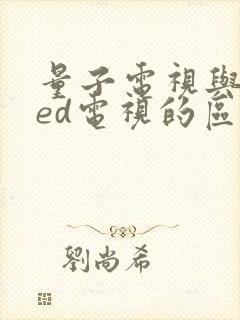 量子電視與
ed電視的區
劉尚希